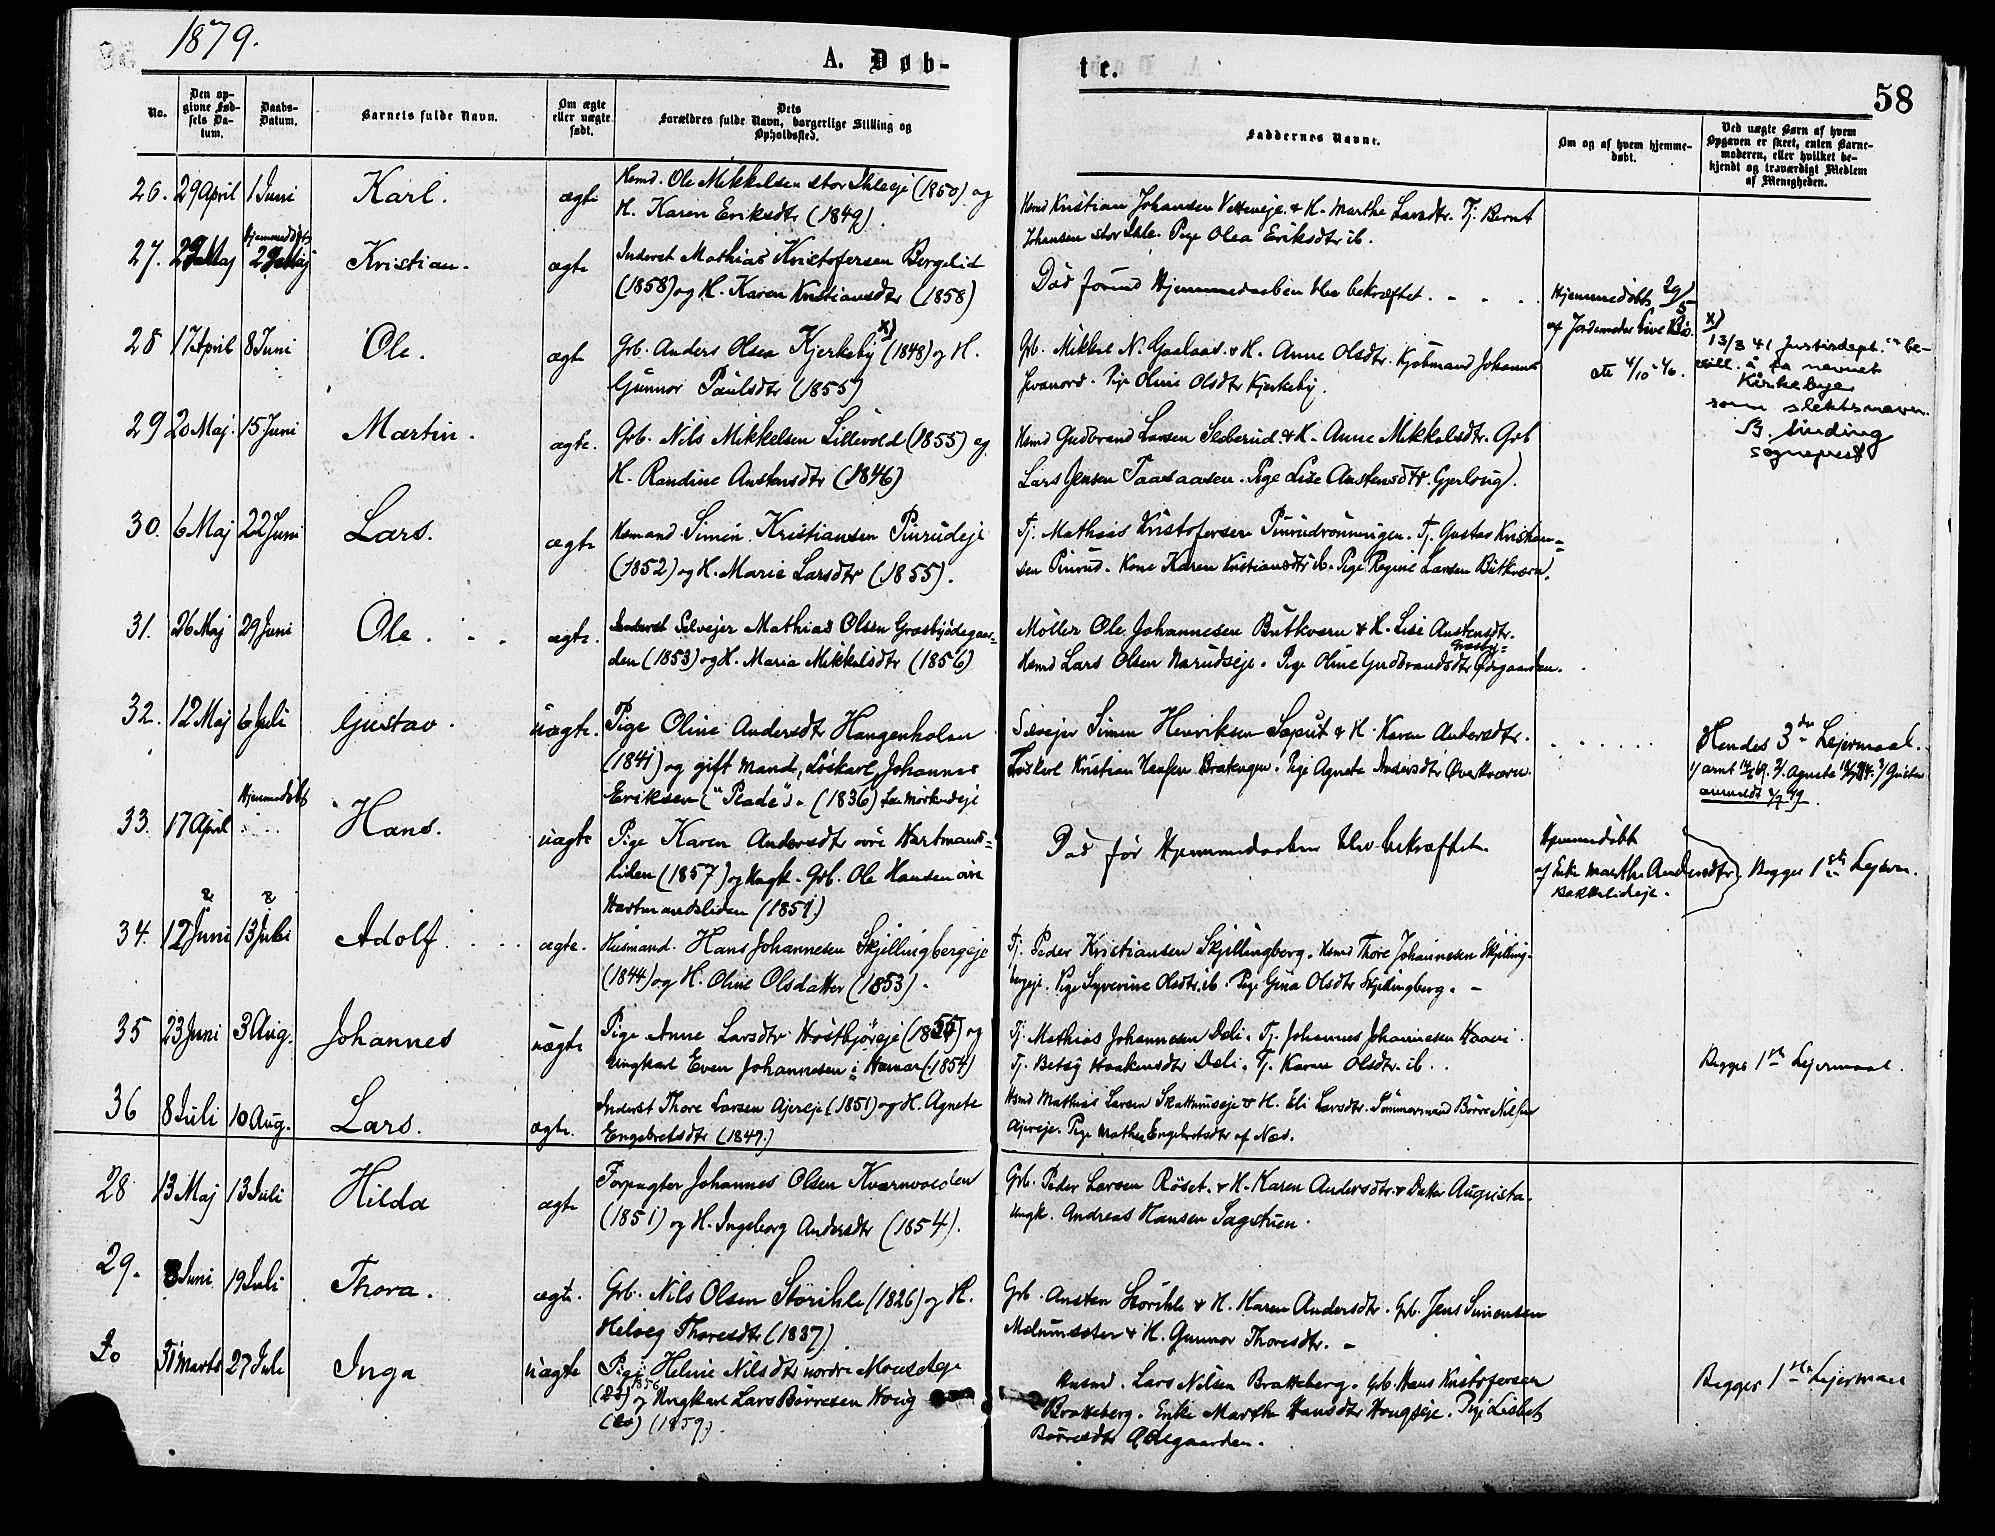 1879.
A. Døb-
te.
58
No.
Den op-
givne Fød-
sels Da-
tum.
Daabs-
Datum.
Barnets fulde Navn.
Om ægte
eller uægte
født.
Dets
Forældres fulde Navn, borgerlige Stilling og
Opholdssted.
Faddernes Navne.
Om og af hvem hjemme-
døbt.
Ved uægte Børn af hvem
Opgaven er skeet, enten Barne-
moderen, eller hvilket be-
kjendt og troværdigt Medlem
af Menigheden.
26. 29 April 1 Juni Karl. ægte
Hsmd. Ole Mikkelsen stor Ihleeje (1850) og
H. Karen Eriksdtr (1849).
Hsmd Kristian Johansen Vetteneje. & H. Marthe Larsdtr. Tj. Bernt
Johansen stor Ihle. Pige Olea Eriksdtr ib.
27. 29 Maj Hjemmedøbt 29 Maj Kristian. ægte
Inderst Mathias Kristofersen Bergelid
(1858) og H. Karen Kristiansdtr (1858)
Død førend Hjemmedaaben blev bekræftet.
Hjemmedøbt 29/5
af Jordemoder Live
28 17 April 8 Juni Ole. ægte
Grb. Anders Olsen Kjerkeby x) (1848) og H.
Gunnor Paulsdtr (1855)
Grb. Mikkel N. Gaalaas. & H. Anne Olsdtr. Kjøbmand Johannes
Pige Oline Olsdtr Kjerkeby.
att 4/10-46.
x)
13/3 41 Justisdept. be-
vill. å ta navnet
Kirkebye
som slektsnavn.
Sinding
sogneprest
29 20 Maj. 15 Juni Martin. ægte.
Grb. Nils Mikkelsen Lillevold (1855) og
H. Randine Austensdtr (1846)
Hsmd Gudbrand Larsen Sloberud. & H. Anne Mikkelsdtr. Grb
Lars Jensen Taasaasen. Pige Lise Austensdtr. Gjerlaug.
30. 6 Maj 22 Juni Lars. ægte
Hsmand Simen Kristiansen Pinrudeje
(1852) og H. Marie Larsdtr (1855).
Tj. Mathias Kristofersen Pinrudrønningen. Tj. Gustav Kristian=
sen Pinrud. Kone Karen Kristiansdtr ib. Pige Regine Larsen Butkværn.
31. 26 Maj 29 Juni Ole. ægte.
Inderst Selvejer Mathias Olsen Grøsbyødegaar=
den (1853) og H. Maria Mikkelsdtr (1856)
Møller Ole Johannesen Butkværn & H. Lise Austensdtr.
Hsmd Lars Olsen Narudseje. Pige Oline Gudbrandsdtr Ødegaarden.
32. 12 Maj 6 Juli Gustav. uægte.
Pige Oline Andersdtr Haugenholen
(1841) og gift Mand, Løskarl, Johannes
Eriksen ("Plade"). (1836)
Selvejer Simen Henriksen Saput & H. Karen Andersdtr.
Løskarl Kristian Hansen Bratengen. Pige Agnete Andersdtr Øverkværn.
Hendes 3die Lejermaal.
33. 17 April Hjemmedøbt Hans. uægte
Pige Karen Andersdtr øvre Hartmands=
liden (1857) og Ungk. Grb. Ole Hansen øvre
Hartmandsliden (1851)
Død før Hjemmedaaben blev bekræftet.
Hjemmedøbt
af Enke Marthe Andersdtr
Bakkelideje.
Begges 1ste Lejerm.
34. 12 Juni 13 Juli Adolf. ægte.
Husmand. Hans Johannesen Skjellingbergeje
(1844) og H. Oline Olsdatter (1853).
Tj. Peder Kristiansen Skjellingberg. Hsmd Thore Johannesen Skjelling-
bergeje. Pige Syverine Olsdtr. ib. Pige Gina Olsdtr Skjellingberg.
35 23 Juni 3 Aug. Johannes uægte
Pige Anne Larsdtr Høstbjøreje (1855) og
Ungkarl Even Johannesen i Hamar (1854)
Tj. Mathias Johannesen Deli. Tj. Johannes Johannesen
Tj. Betsy Haakensdtr Deli. Tj. Karen Olsdtr. ib.
Begges 1ste Lejermaal.
36 8 Juli 10 Aug. Lars. ægte.
Inderst Thore Larsen Ajereje (1851) og H. Agnete
Engebretsdtr (1849.)
Hsmd Mathias Larsen Skattumseje & H. Eli Larsdtr. Tømmermand Børre Nilsen
Ajereje. Pige Mathea Engebretsdtr af Nes.
28 13 Maj 13 Juli Hilda ægte
Forpagter Johannes Olsen Kværnvolden
(1851) og H. Ingeborg Andersdtr (1854).
Grb. Peder Larsen Røset. & H. Karen Andersdtr. & Datter Augusta.
Ungk. Andreas Hansen Sagstuen.
29. 8 Juni 19 Juli Thora. ægte.
Grb. Nils Olsen Storihle (1826) og H.
Helveg Thoresdtr (1837)
Grb. Austen Storihle & H. Karen Andersdtr. Grb. Jens Simensen
Melumsæter & H. Gunnor Thoresdtr.
30 31 Marts 27 Juli Inga uægte
Pige Heline Nilsdtr nordre
1856 og Ungkarl Lars Børresen Houg
(1859).
Husmd. Lars Nilsen Bratteberg. Grb. Hans Kristofersen
Bratteberg. Enke Marthe Hansdtr Hougseje. Pige Lisbet
Børresdtr Ødegaarden.
Begges 1ste Lejermaal